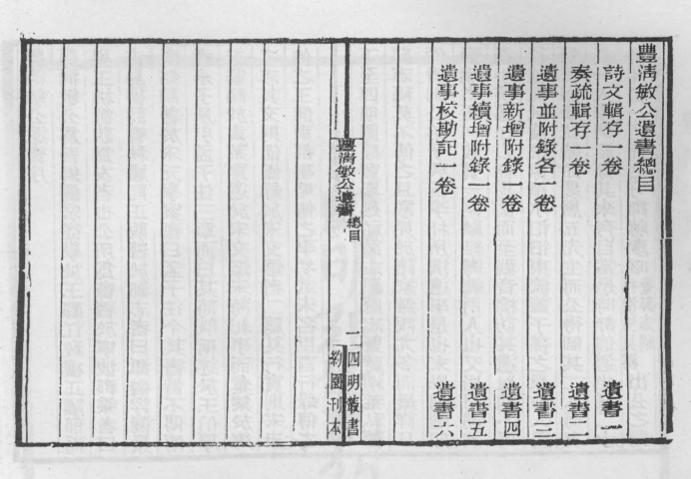 豐淸敏公遺書總目
詩文輯存一卷 遺書一
奏疏輯存一卷 遺書二
遺事並附錄各一卷 遺書三
遺事新增附錄一卷 遺書四
遺事續增附錄一卷 遺書五
遺事校勘記一卷 遺書六
豐淸敏公遺書 總目
一
四明叢書
約園刊本